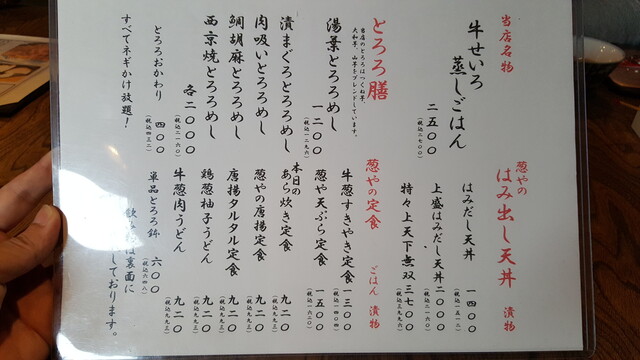 当店名物
牛せいろ
蒸しごはん
二五〇〇
(税込二七〇〇)
とろろ膳
当店のとろろはつくね芋、
大和芋、山芋をブレンドしています。
湯葉とろろめし
一二〇〇
(税込一二九六)
漬まぐろとろろめし
肉吸いとろろめし
鯛胡麻とろろめし
西京焼とろろめし
各二〇〇〇
(税込二一六〇)
とろろおかわり
四〇〇
(税込四三二)
すべてネギかけ放題!
葱やの
はみ出し天丼
漬物
はみだし天丼
一四〇〇
(税込一五一二)
上盛はみだし天丼
二〇〇〇
(税込二一六〇)
特々上天下無双
三七〇〇
(税込三九九六)
葱やの定食
ごはん 漬物
牛葱すきやき定食
一三〇〇
(税込一四〇四)
葱や天ぷら定食
一五〇〇
(税込一六二〇)
本日の
あら炊き定食
九二〇
(税込九九三)
葱やの唐揚定食
九二〇
(税込九九三)
唐揚タルタル定食
九二〇
(税込九九三)
鶏葱柚子うどん
九二〇
(税込九九三)
牛葱肉うどん
九二〇
(税込九九三)
単品とろろ鉢
六〇〇
(税込六四八)
は裏面に
しております。